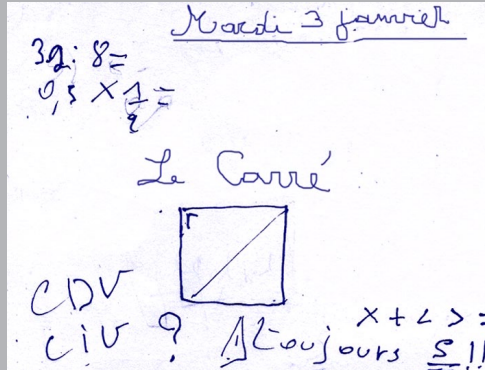 Mardi 3 janvier
32 : 8 =
0,5 × 1/2 =
Le Carré
CDV
CIV ?
× + < > =
toujours 5 !!